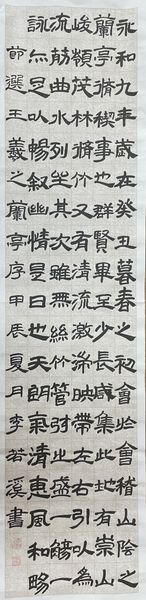 永和九年歲在癸丑暮春之初會於會稽山陰之
蘭亭脩禊事也群賢畢至少長咸集此地有崇山
峻領茂林脩竹又有清流激湍映帶左右引以為
流觴曲水列坐其次雖無絲竹管弦之盛一觴一
詠亦足以暢叙幽情是日也天朗氣清惠風和略
節選王羲之蘭亭序甲辰夏月李若溪書